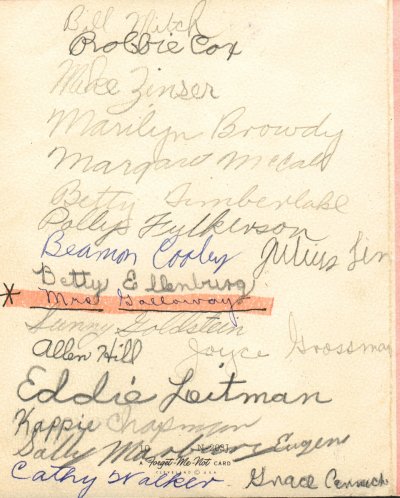 Bill Mitch
Robbie Cox
Mike Zinser
Marilyn Browdy
Margaret McCall
Betty Timberlake
Polly Fulkerson
Beamon Cooley Julius
Betty Ellenburg
* Mrs Galloway
Sunny Goldstein
Allen Hill Joyce Grossman
Eddie Leitman
Kappie Chapman
Sally Eugene
A Forget-Me-Not CARD
CLEVELAND U.S.A.
Cathy Walker Grace